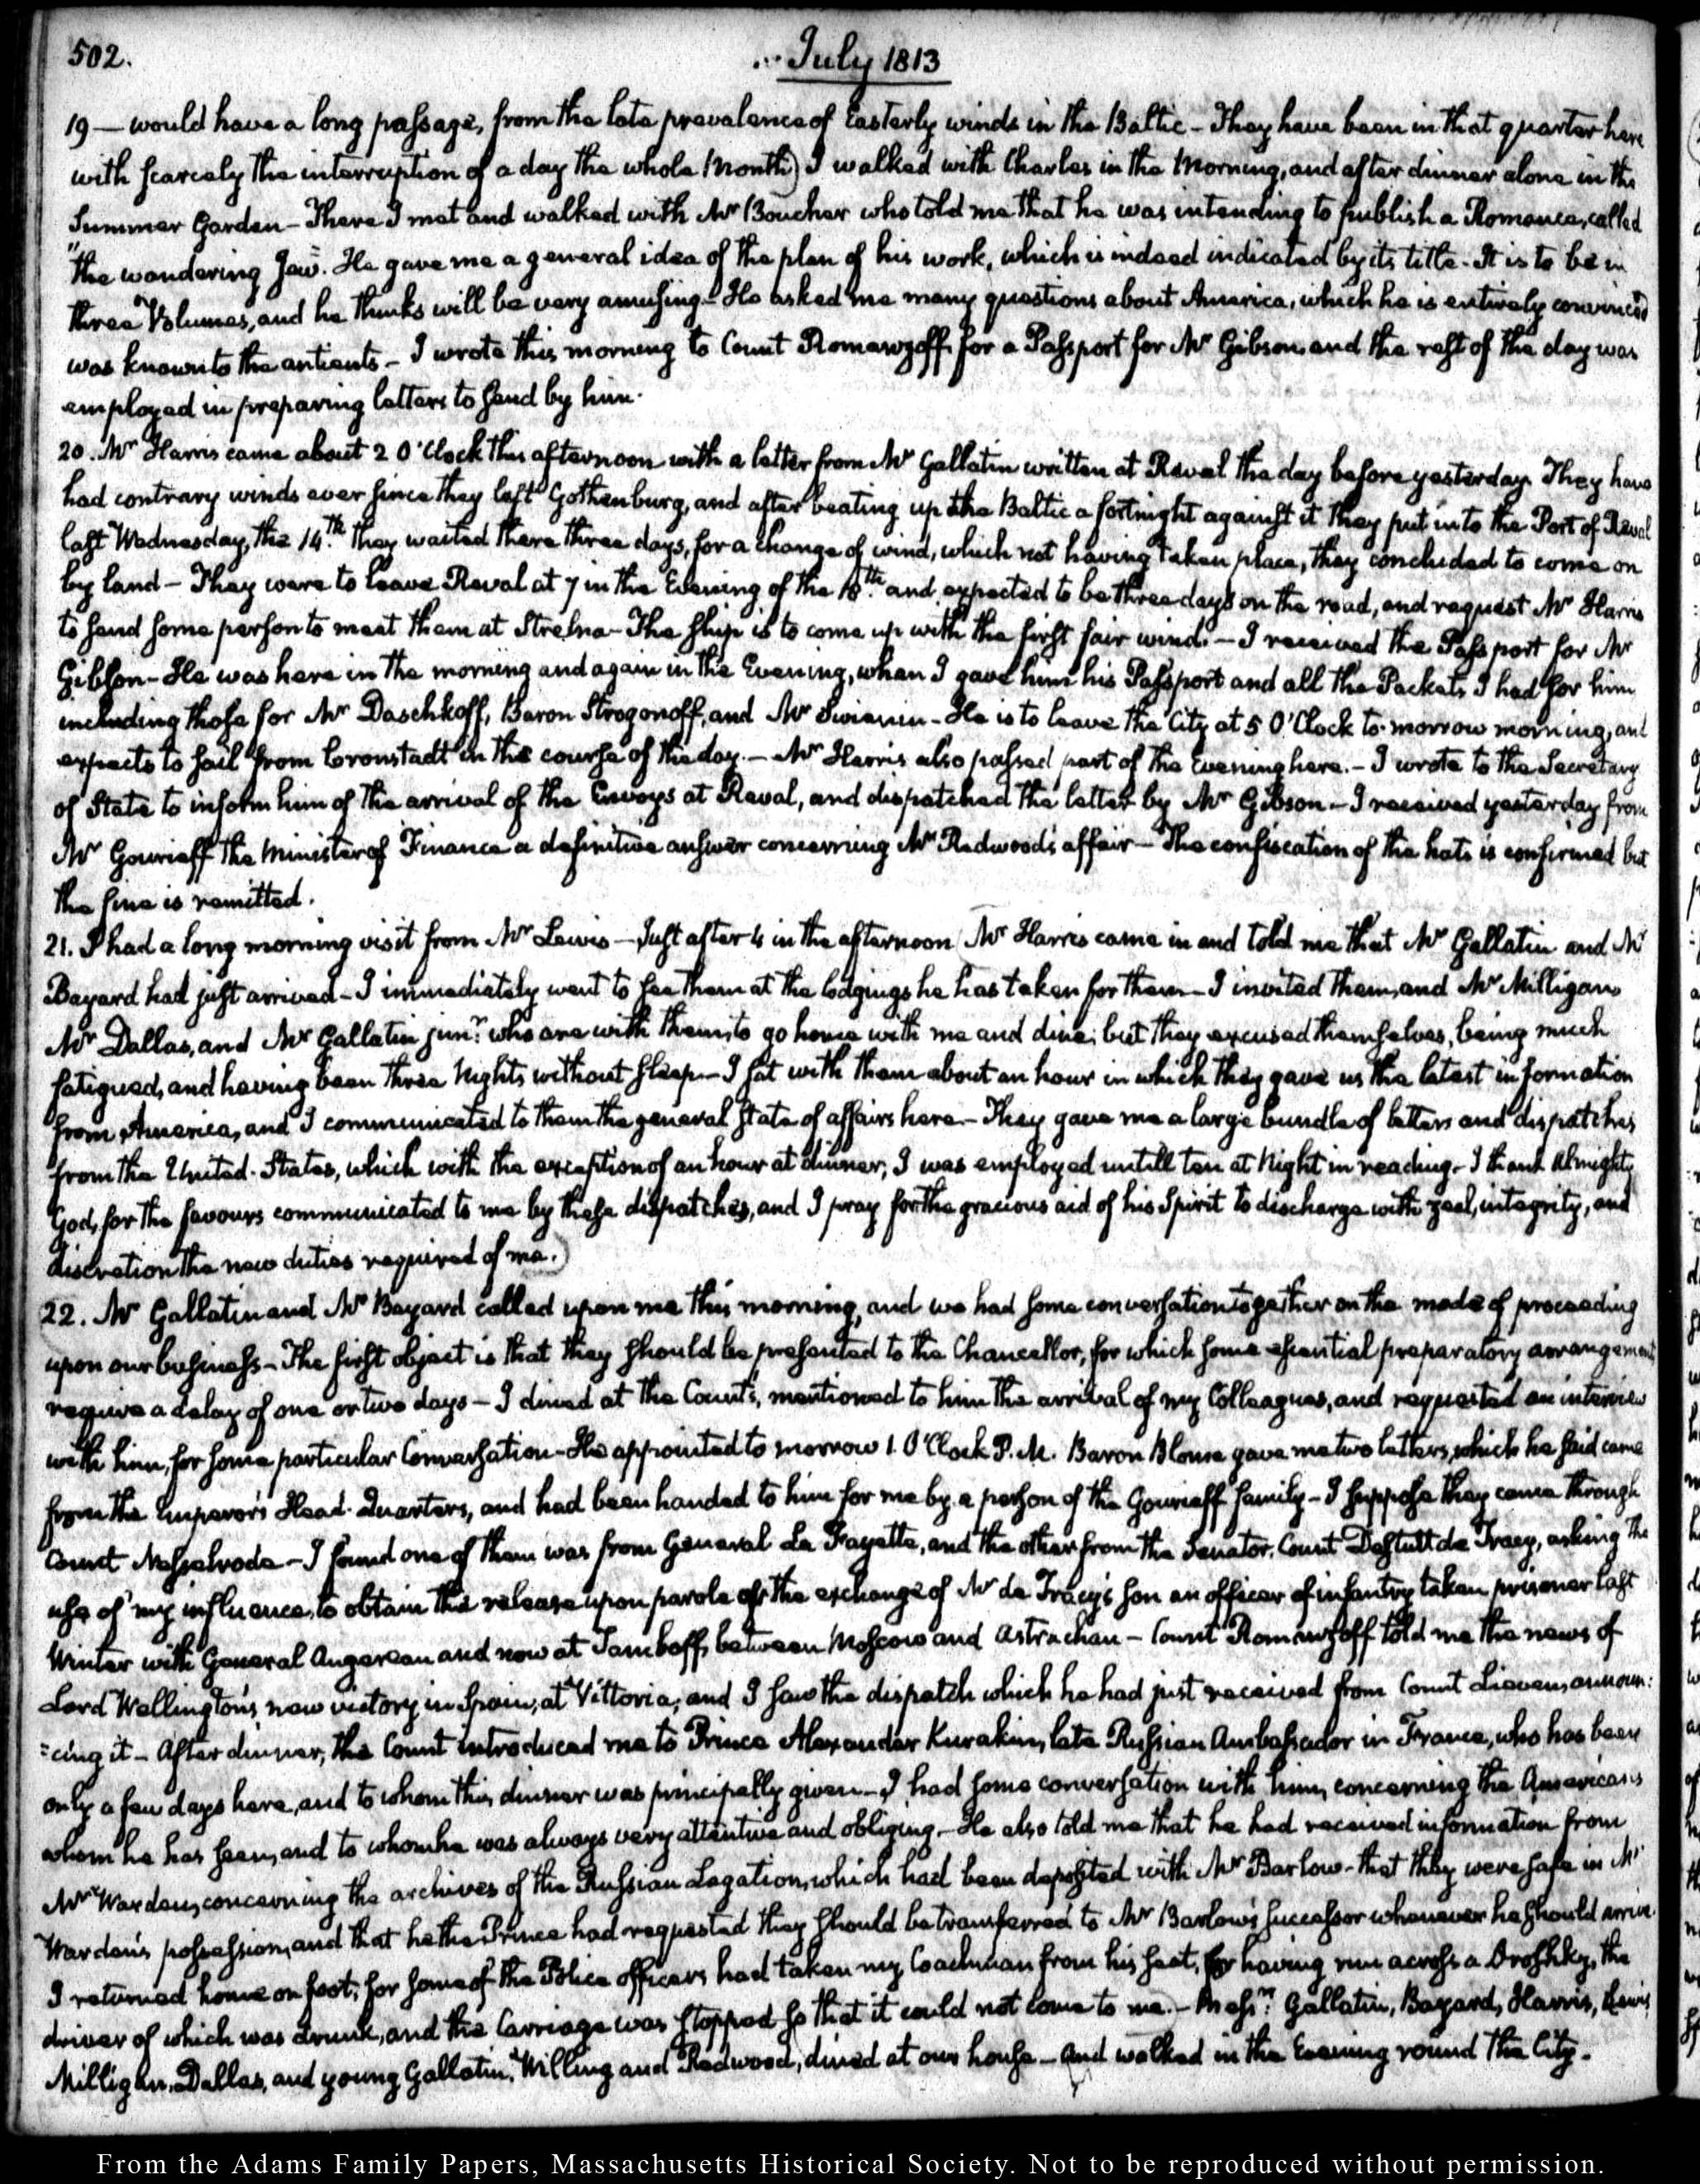 502.
July 1813
19 — would have a long passage, from the late prevalence of Easterly winds in the Baltic - They have been in that quarter here
with scarcely the interruption of a day the whole Month) I walked with Charles in the Morning, and after dinner alone in the
Summer Garden - There I met and walked with Mr Boucher who told me that he was intending to publish a Romance, called
"the wandering Jew". He gave me a general idea of the plan of his work, which is indeed indicated by its title - It is to be in
three Volumes, and he thinks will be very amusing - He asked me many questions about America, which he is entirely convinced
was known to the antients - I wrote this morning to Count Romanzoff, for a Passport for Mr Gibson, and the rest of the day was
employed in preparing letters to send by him.
20. Mr Harris came about 2 O'Clock this afternoon with a letter from Mr Gallatin written at Reval the day before yesterday. They have
had contrary winds ever since they left Gothenburg, and after beating up the Baltic a fortnight against it they put into the Port of Reval
last Wednesday, the 14th. they waited there three days, for a change of wind, which not having taken place, they concluded to come on
by land - They were to leave Reval at 7 in the Evening of the 18th. and expected to be three days on the road, and request Mr Harris
to send some person to meet them at Strelna - The ship is to come up with the first fair wind. - I received the Passport for Mr
Gibson - He was here in the morning and again in the Evening, when I gave him his Passport and all the Packets I had for him
including those for Mr Daschkoff, Baron Strogonoff, and Mr Swinin - He is to leave the City at 5 O'Clock to-morrow morning, and
expects to sail from Cronstadt in the course of the day. - Mr Harris also passed part of the Evening here. - I wrote to the Secretary
of State to inform him of the arrival of the Envoys at Reval, and dispatched the letter by Mr Gibson - I received yesterday from
Mr Gourieff the Minister of Finance a definitive answer concerning Mr Redwood's affair - The confiscation of the hats is confirmed but
the fine is remitted.
21. I had a long morning visit from Mr Lewis - Just after 4 in the afternoon Mr Harris came in and told me that Mr Gallatin and Mr
Bayard had just arrived - I immediately went to see them at the lodgings he has taken for them - I invited them, and Mr Milligan
Mr Dallas, and Mr Gallatin junr. who are with them, to go home with me and dine; but they excused themselves, being much
fatigued, and having been three Nights without sleep - I sat with them about an hour in which they gave us the latest information
from America, and I communicated to them the general state of affairs here - They gave me a large bundle of letters and dispatches
from the United-States, which with the exception of an hour at dinner, I was employed untill ten at Night in reading - I thank Almighty
God, for the favours communicated to me by these dispatches, and I pray for the gracious aid of his Spirit to discharge with zeal, integrity, and
discretion the new duties required of me.)
22. Mr Gallatin and Mr Bayard called upon me this morning, and we had some conversation together on the mode of proceeding
upon our business - The first object is that they should be presented to the Chancellor, for which some essential preparatory arrangements
require a delay of one or two days - I dined at the Count's, mentioned to him the arrival of my Colleagues, and requested an interview
with him, for some particular Conversation - He appointed to morrow 1. O'Clock P.M. Baron Blome gave me two letters, which he said came
from the Emperor's Head-Quarters, and had been handed to him for me by a person of the Gourieff family - I suppose they came through
Count Nesselrode - I found one of them was from General La Fayette, and the other from the Senator, Count Destutt de Tracy, asking the
use of my influence, to obtain the release upon parole or the exchange of Mr de Tracy's son an officer of infantry taken prisoner last
Winter with General Augereau and now at Tamboff, between Moscow and Astrachan - Count Romanzoff told me the news of
Lord Wellington's new victory in Spain, at Vittoria; and I saw the dispatch which he had just received from Count Lieven, announ:
:cing it - After dinner, the Count introduced me to Prince Alexander Kurakin, late Russian Ambassador in France, who has been
only a few days here, and to whom this dinner was principally given - I had some conversation with him, concerning the Americans
whom he has seen, and to whom he was always very attentive and obliging - He also told me that he had received information from
Mr Warden, concerning the archives of the Russian Legation, which had been deposited with Mr Barlow - that they were safe in Mr
Warden's possession, and that he the Prince had requested they should be transferred to Mr Barlow's successor whenever he should arrive.
I returned home on foot; for some of the Police officers had taken my Coachman from his seat, for having run across a Droshky, the
driver of which was drunk, and the Carriage was stopped so that it could not come to me. - Messrs. Gallatin, Bayard, Harris, Lewis
Milligan, Dallas, and young Gallatin, Willing and Redwood, dined at our house - and walked in the Evening round the City.
From the Adams Family Papers, Massachusetts Historical Society. Not to be reproduced without permission.